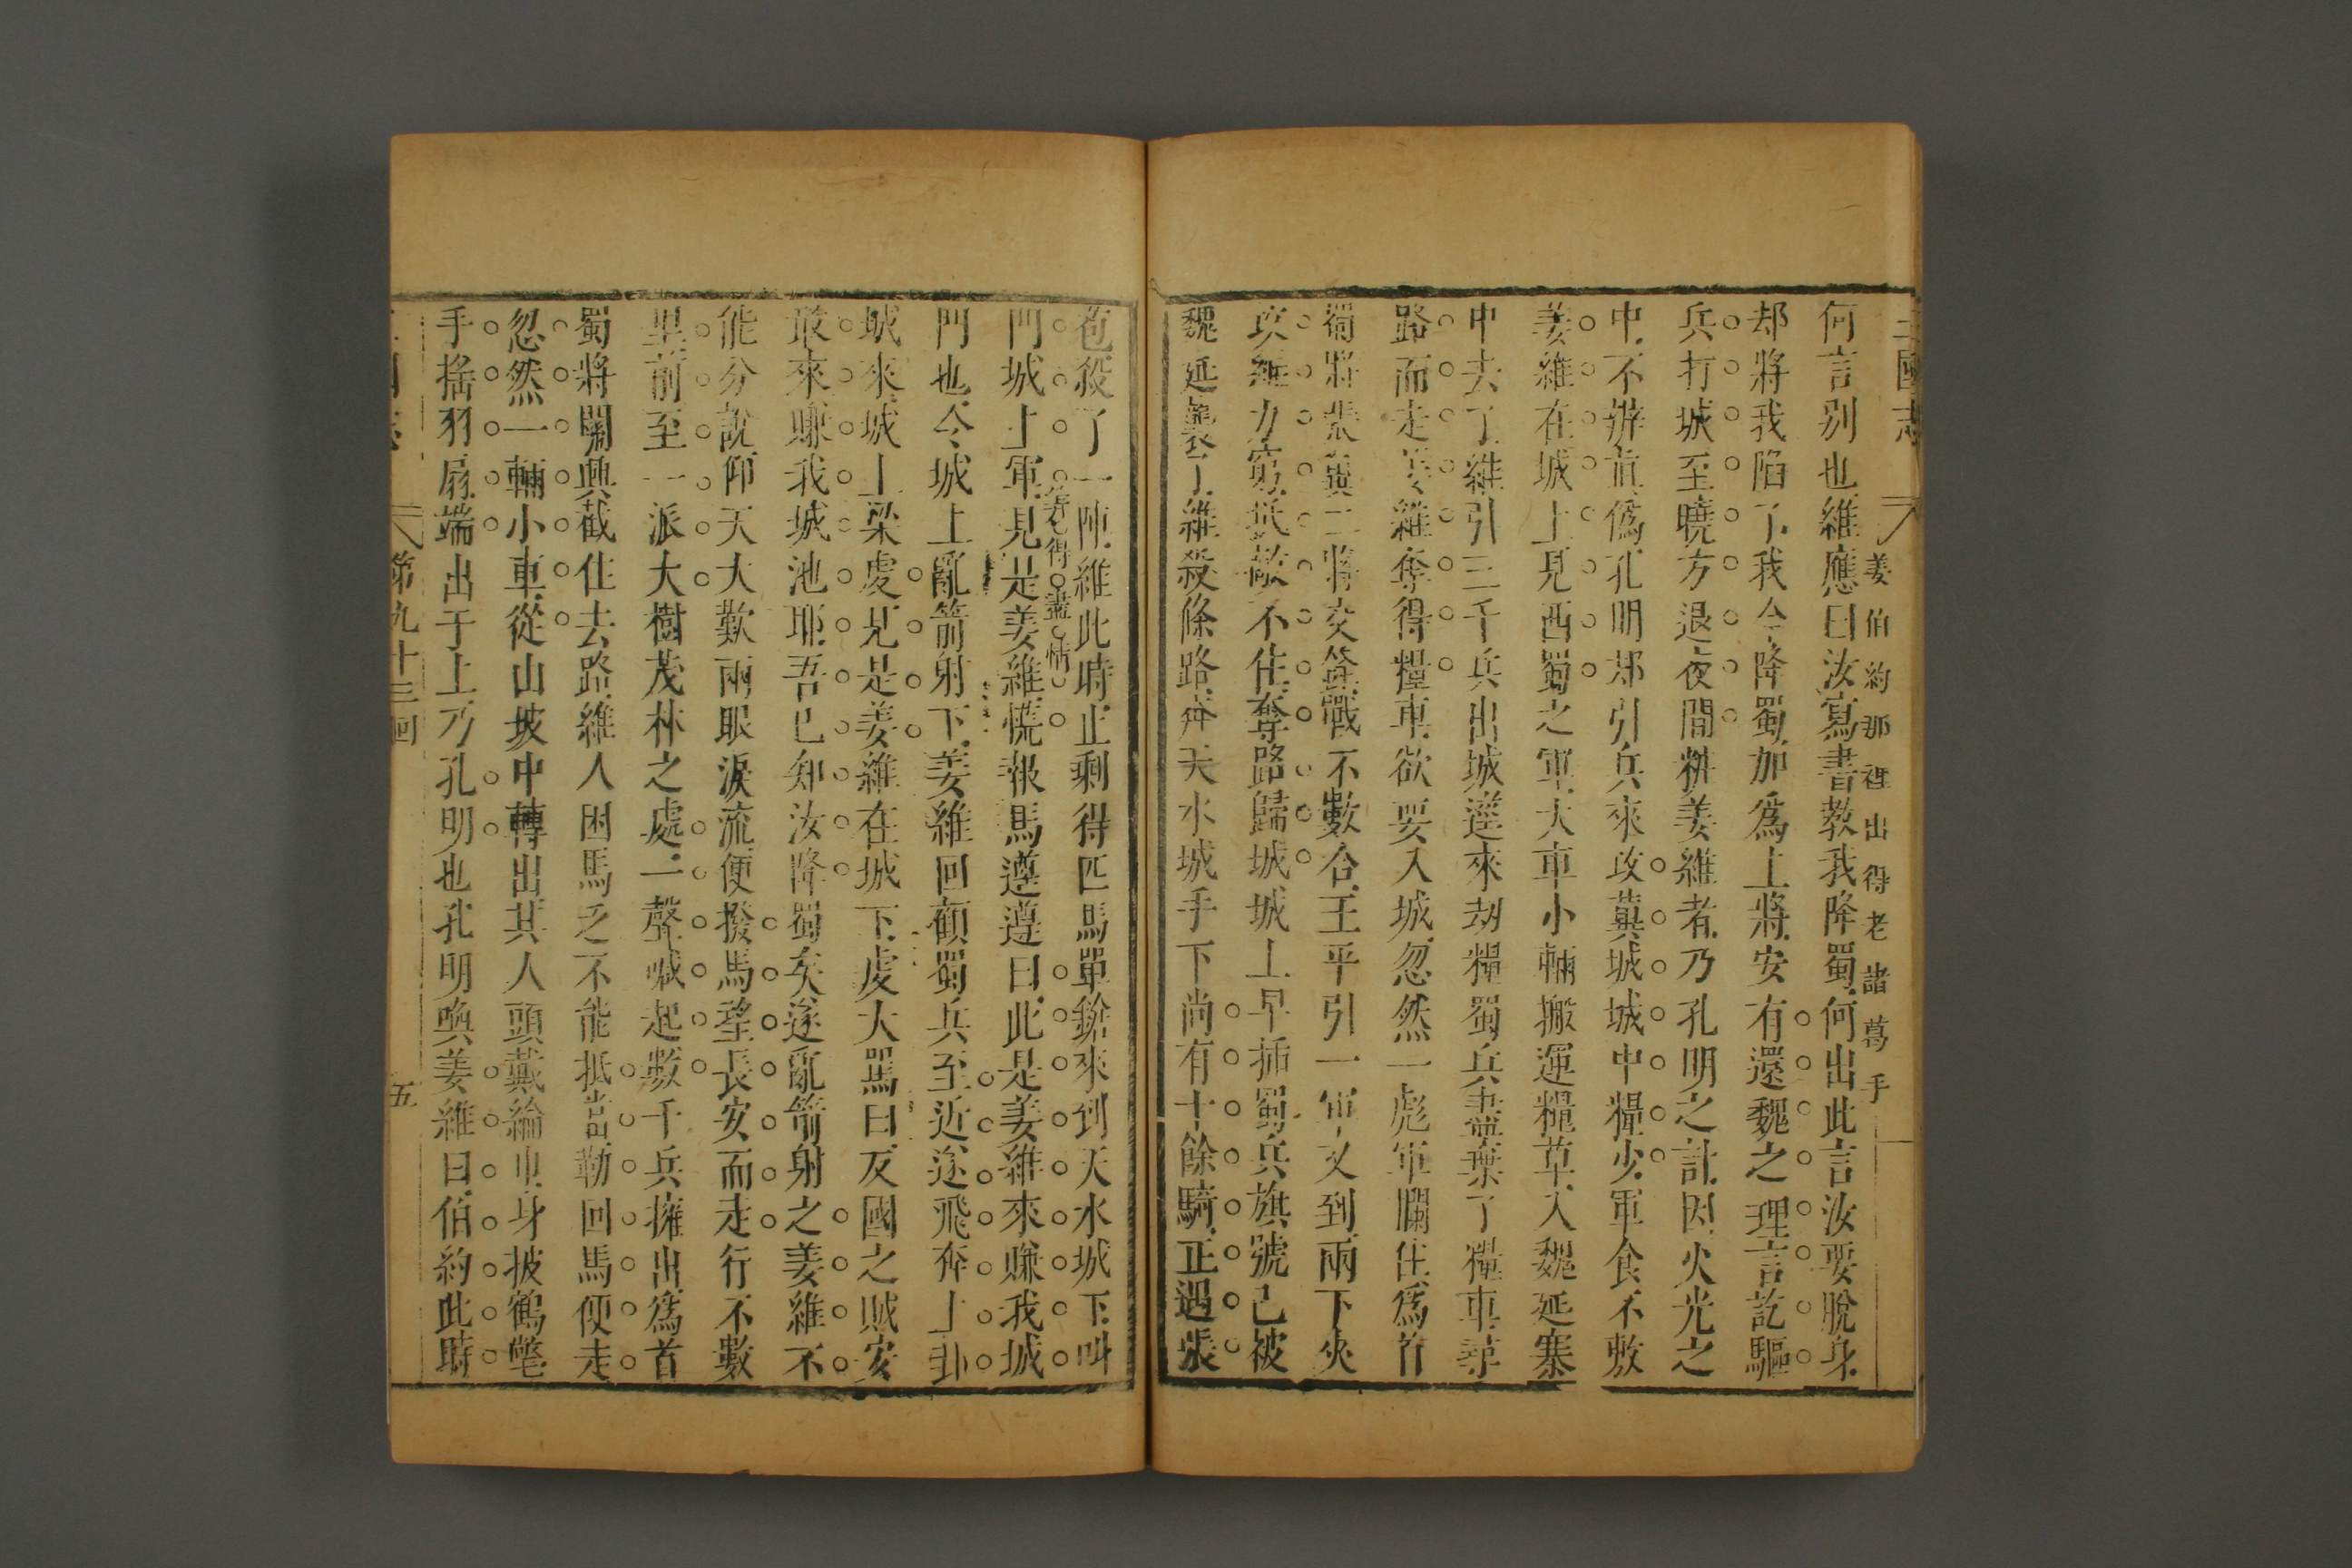 三國志
姜伯約那裡出得老諸葛手
何言別也維應曰汝寫書教我降蜀何出此言汝要脫身
却將我陷了我今降蜀加爲上將安有還魏之理言訖驅
兵打城至曉方退夜間粧姜維者乃孔明之計因火光之
中不辨真僞孔明却引兵來攻冀城城中糧少軍食不敷
姜維在城上見西蜀之軍大車小輛搬運糧草入魏延寨
中去了維引三千兵出城逕來刼糧蜀兵盡棄了糧車尋
路而走姜維奪得糧車欲要入城忽然一彪軍攔住爲首
蜀將張翼二將交鋒戰不數合王平引一軍又到兩下夾
攻維力窮抵敵不住奪路歸城城上早揷蜀兵旗號已被
魏延襲了維殺條路奔天水城手下尚有十餘騎正遇張
苞殺了一陣維此時止剩得匹馬單鎗來到天水城下叫
苦得盡情
門城上軍見是姜維慌報馬遵遵曰此是姜維來賺我城
門也令城上亂箭射下姜維回顧蜀兵至近遂飛奔上邽
城來城上梁虔見是姜維在城下虔大罵曰反國之賊安
敢來賺我城池耶吾已知汝降蜀矣遂亂箭射之姜維不
能分說仰天大歎兩眼淚流便撥馬望長安而走行不數
里前至一派大樹茂林之處一聲喊起數千兵擁出爲首
蜀將關興截住去路維人困馬乏不能抵當勒回馬便走
忽然一輛小車從山坡中轉出其人頭戴綸巾身披鶴氅
手搖羽扇端出于上乃孔明也孔明喚姜維曰伯約此時
第九十三回
五